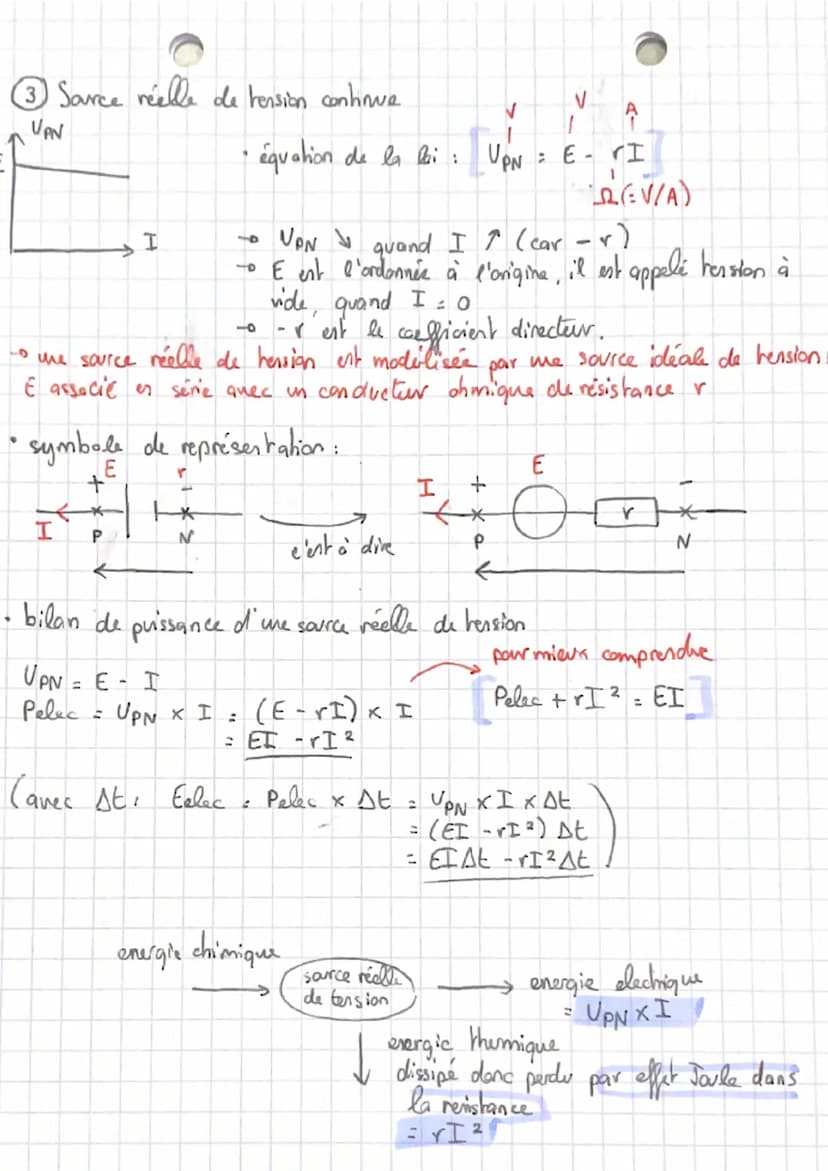 ③ Source réelle de tension continue
U_PN
E
I
V V A
• équation de la loi : [U_PN = E - rI]
Ω (= V/A)
→ U_PN ↘ quand I ↑ (car - r)
→ E est l'ordonnée à l'origine, il est appelé tension à
vide, quand I = 0
→ - r est le coefficient directeur.
→ une source réelle de tension est modélisée par une source idéale de tension
E associé en série avec un conducteur ohmique de résistance r
• symbole de représentation :
E r
+ -
I P N
c'est à dire
E
I + -
r
P N
• bilan de puissance d'une source réelle de tension
pour mieux comprendre
U_PN = E - I
[Pelec + rI² = EI]
Pelec = U_PN × I = (E - rI) × I
= EI - rI²
(avec Δt : Eelec = Pelec × Δt = U_PN × I × Δt
= (EI - rI²) Δt
= EIΔt - rI²Δt)
energie chimique
source réelle
de tension
energie electrique
= U_PN × I
energie thermique
dissipé donc perdu par effet Joule dans
la resistance
= rI²